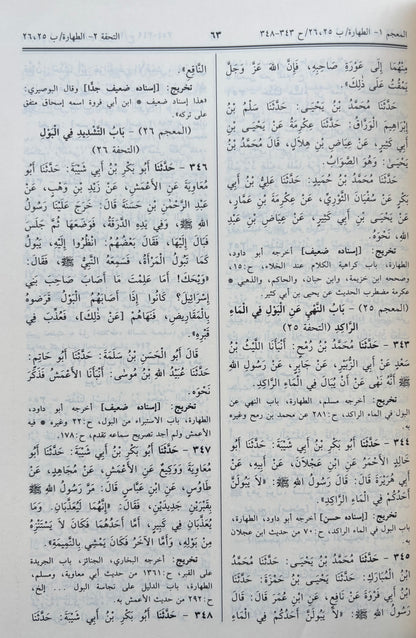 المعجم ١- الطهارة/ ب ٢٥، ٢٦/ح ٣٤٣-٣٤٨
٦٣
التحفة ٢- الطهارة/ ب ٢٥، ٢٦
مِنْهُمَا إِلَى عَوْرَةِ صَاحِبِهِ، فَإِنَّ اللهَ عَزَّ وَجَلَّ
يَمْقُتُ عَلَى ذٰلِكَ».
حَدَّثَنَا مُحَمَّدُ بْنُ يَحْيَى: حَدَّثَنَا سَلْمُ بْنُ
إِبْرَاهِيمَ الْوَرَّاقُ: حَدَّثَنَا عِكْرِمَةُ عَنْ يَحْيَى بْنِ
أَبِي كَثِيرٍ، عَنْ عِيَاضِ بْنِ هِلَالٍ، قَالَ مُحَمَّدُ بْنُ
يَحْيَى: وَهُوَ الصَّوَابُ.
حَدَّثَنَا مُحَمَّدُ بْنُ حُمَيْدٍ: حَدَّثَنَا عَلِيُّ بْنُ أَبِي
بَكْرٍ عَنْ سُفْيَانَ الثَّوْرِيِّ، عَنْ عِكْرِمَةَ بْنِ عَمَّارٍ،
عَنْ يَحْيَى بْنِ أَبِي كَثِيرٍ، عَنْ عِيَاضِ بْنِ عَبْدِ
اللهِ، نَحْوَهُ.
تخريج: [إسناده ضعيف] أخرجه أبو داود،
الطهارة، باب كراهية الكلام عند الخلاء، ح:١٥،
وصححه ابن خزيمة، وابن حبان، والحاكم، والذهبي *
عكرمة مضطرب الحديث عن يحيى بن أبي كثير.
(المعجم ٢٥) - بَابُ النَّهْيِ عَنِ الْبَوْلِ فِي الْمَاءِ
الرَّاكِدِ (التحفة ٢٥)
٣٤٣ - حَدَّثَنَا مُحَمَّدُ بْنُ رُمْحٍ: أَنْبَأَنَا اللَّيْثُ بْنُ
سَعْدٍ عَنْ أَبِي الزُّبَيْرِ، عَنْ جَابِرٍ، عَنْ رَسُولِ اللهِ
ﷺ أَنَّهُ نَهَى عَنْ أَنْ يُبَالَ فِي الْمَاءِ الرَّاكِدِ.
تخريج: أخرجه مسلم، الطهارة، باب النهي عن
البول في الماء الراكد، ح:٢٨١ عن محمد بن رمح وغيره
به.
٣٤٤ - حَدَّثَنَا أَبُو بَكْرِ بْنُ أَبِي شَيْبَةَ: حَدَّثَنَا أَبُو
خَالِدٍ الْأَحْمَرُ عَنِ ابْنِ عَجْلَانَ، عَنْ أَبِيهِ، عَنْ
أَبِي هُرَيْرَةَ قَالَ: قَالَ رَسُولُ اللهِ ﷺ: «لَا يَبُولَنَّ
أَحَدُكُمْ فِي الْمَاءِ الرَّاكِدِ».
تخريج: [إسناده حسن] أخرجه أبو داود، الطهارة،
باب البول في الماء الراكد، ح:٧٠ من حديث ابن عجلان
به.
٣٤٥ - حَدَّثَنَا مُحَمَّدُ بْنُ يَحْيَى: حَدَّثَنَا مُحَمَّدُ
ابْنُ الْمُبَارَكِ: حَدَّثَنَا يَحْيَى بْنُ حَمْزَةَ: حَدَّثَنَا
ابْنُ أَبِي فَرْوَةَ عَنْ نَافِعٍ، عَنِ ابْنِ عُمَرَ قَالَ: قَالَ
رَسُولُ اللهِ ﷺ: «لَا يَبُولَنَّ أَحَدُكُمْ فِي الْمَاءِ
النَّاقِعِ».
تخريج: [إسناده ضعيف جدًّا] وقال البوصيري:
«هذا إسناد ضعيف * ابن أبي فروة اسمه إسحاق متفق
على تركه».
(المعجم ٢٦) - بَابُ التَّشْدِيدِ فِي الْبَوْلِ
(التحفة ٢٦)
٣٤٦ - حَدَّثَنَا أَبُو بَكْرِ بْنُ أَبِي شَيْبَةَ: حَدَّثَنَا أَبُو
مُعَاوِيَةَ عَنِ الْأَعْمَشِ، عَنْ زَيْدِ بْنِ وَهْبٍ، عَنْ
عَبْدِ الرَّحْمٰنِ بْنِ حَسَنَةَ قَالَ: خَرَجَ عَلَيْنَا رَسُولُ
اللهِ ﷺ، وَفِي يَدِهِ الدَّرَقَةُ، فَوَضَعَهَا ثُمَّ جَلَسَ
فَبَالَ إِلَيْهَا، فَقَالَ بَعْضُهُمْ: انْظُرُوا إِلَيْهِ، يَبُولُ
كَمَا تَبُولُ الْمَرْأَةُ، فَسَمِعَهُ النَّبِيُّ ﷺ، فَقَالَ:
«وَيْحَكَ! أَمَا عَلِمْتَ مَا أَصَابَ صَاحِبَ بَنِي
إِسْرَائِيلَ؟ كَانُوا إِذَا أَصَابَهُمُ الْبَوْلُ قَرَضُوهُ
بِالْمَقَارِيضِ، فَنَهَاهُمْ [عَنْ ذٰلِكَ]، فَعُذِّبَ فِي
قَبْرِهِ».
قَالَ أَبُو الْحَسَنِ بْنُ سَلَمَةَ: حَدَّثَنَا أَبُو حَاتِمٍ:
حَدَّثَنَا عُبَيْدُ اللهِ بْنُ مُوسَى: أَنْبَأَنَا الْأَعْمَشُ فَذَكَرَ
نَحْوَهُ.
تخريج: [إسناده ضعيف] أخرجه أبو داود،
الطهارة، باب الاستبراء من البول، ح:٢٢ وغيره * فيه
الأعمش ولم أجد تصريح سماعه تقدم، ح:١٧٨.
٣٤٧ - حَدَّثَنَا أَبُو بَكْرِ بْنُ أَبِي شَيْبَةَ: حَدَّثَنَا أَبُو
مُعَاوِيَةَ وَوَكِيعٌ عَنِ الْأَعْمَشِ، عَنْ مُجَاهِدٍ، عَنْ
طَاوُسٍ، عَنِ ابْنِ عَبَّاسٍ قَالَ: مَرَّ رَسُولُ اللهِ ﷺ
بِقَبْرَيْنِ جَدِيدَيْنِ، فَقَالَ: «إِنَّهُمَا لَيُعَذَّبَانِ. وَمَا
يُعَذَّبَانِ فِي كَبِيرٍ، أَمَّا أَحَدُهُمَا فَكَانَ لَا يَسْتَنْزِهُ
مِنْ بَوْلِهِ، وَأَمَّا الْآخَرُ فَكَانَ يَمْشِي بِالنَّمِيمَةِ».
تخريج: أخرجه البخاري، الجنائز، باب الجريدة
على القبر، ح:١٣٦١ من حديث أبي معاوية، ومسلم،
الطهارة، باب الدليل على نجاسة البول ... إلخ،
ح:٢٩٢ من حديث الأعمش به.
٣٤٨ - حَدَّثَنَا أَبُو بَكْرِ بْنُ أَبِي شَيْبَةَ: حَدَّثَنَا